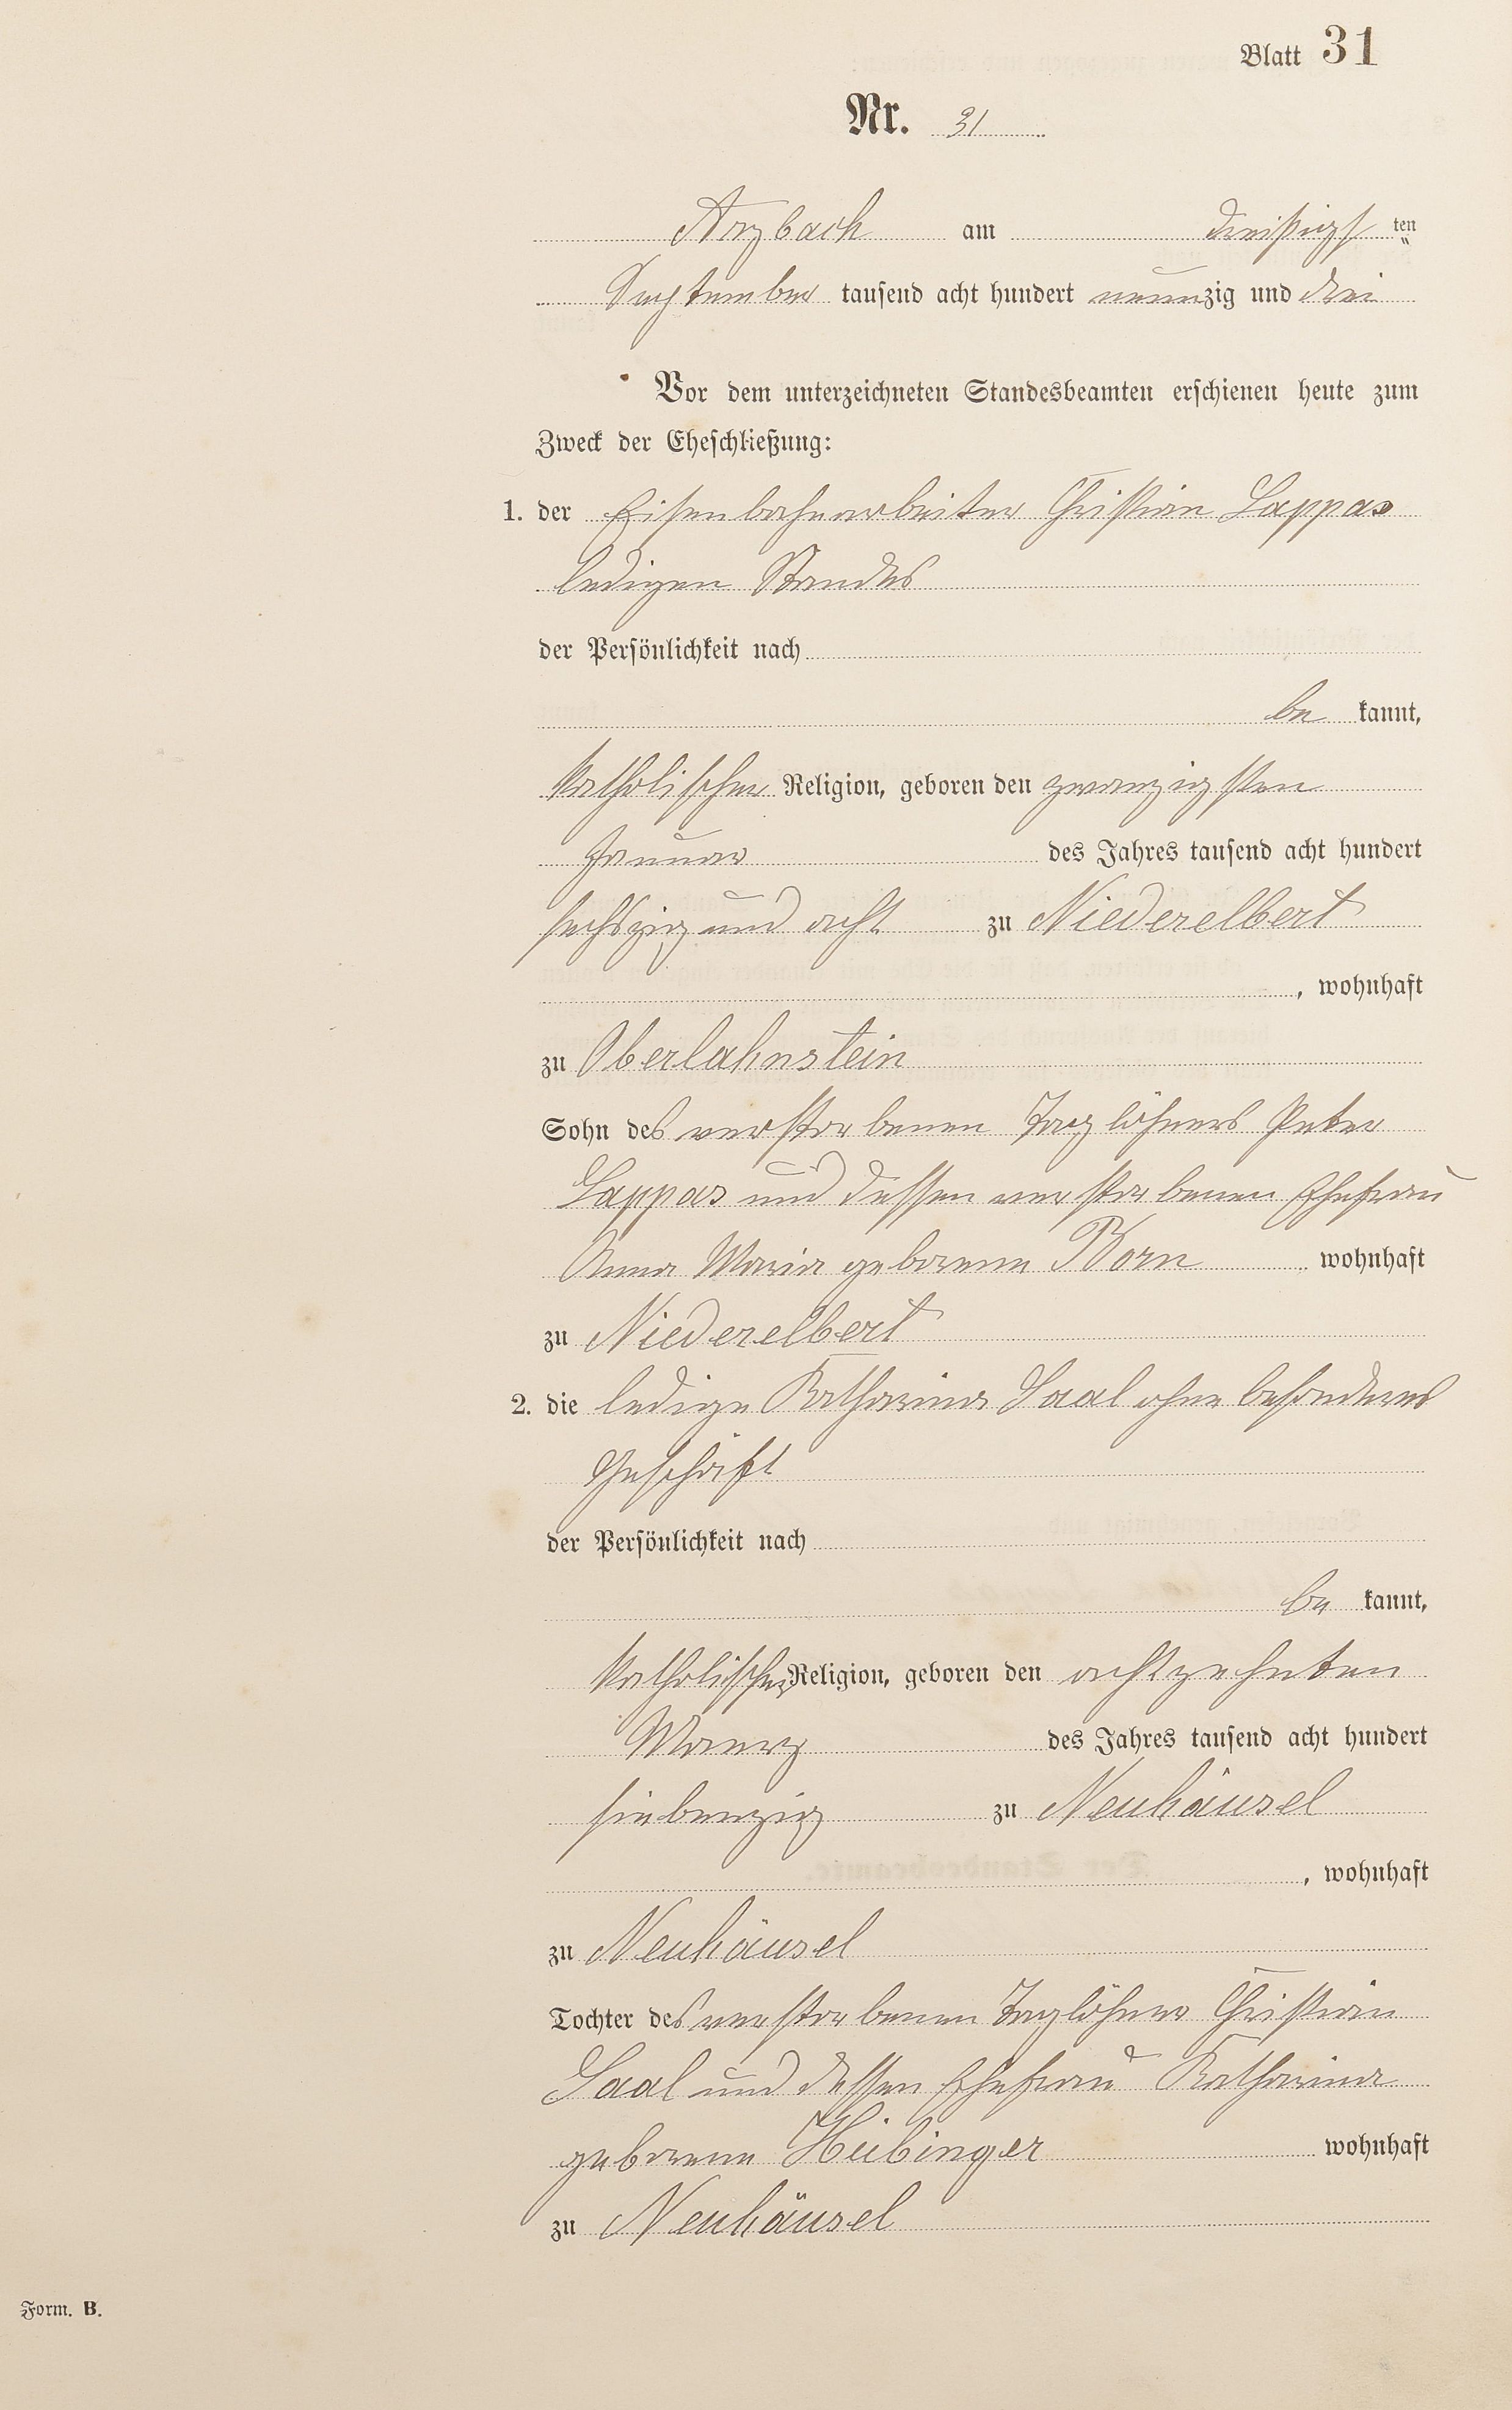 Blatt 31
Nr. 31
Arzbach am dreißigst ten
September tausend acht hundert neunzig und drei
Vor dem unterzeichneten Standesbeamten erschienen heute zum
Zweck der Eheschließung:
1. der Eisenbahnarbeiter Christian Lappas
ledigen Standes
der Persönlichkeit nach
be kannt,
katholischer Religion, geboren den zwanzigsten
Januar des Jahres tausend acht hundert
sechszig und acht zu Niederelbert
, wohnhaft
zu Oberlahnstein
Sohn des verstorbenen Taglöhners Peter
Lappas und dessen verstorbenen Ehefrau
Anna Maria geborene Born wohnhaft
zu Niederelbert
2. die ledige Katharina Saal ohne besonderes
Geschäft
der Persönlichkeit nach
be kannt,
katholischer Religion, geboren den achtzehnten
Maerz des Jahres tausend acht hundert
siebenzig zu Neuhäusel
, wohnhaft
zu Neuhäusel
Tochter des verstorbenen Taglöhner Christian
Saal und dessen Ehefrau Katharina
geborene Hübinger wohnhaft
zu Neuhäusel
Form. B.